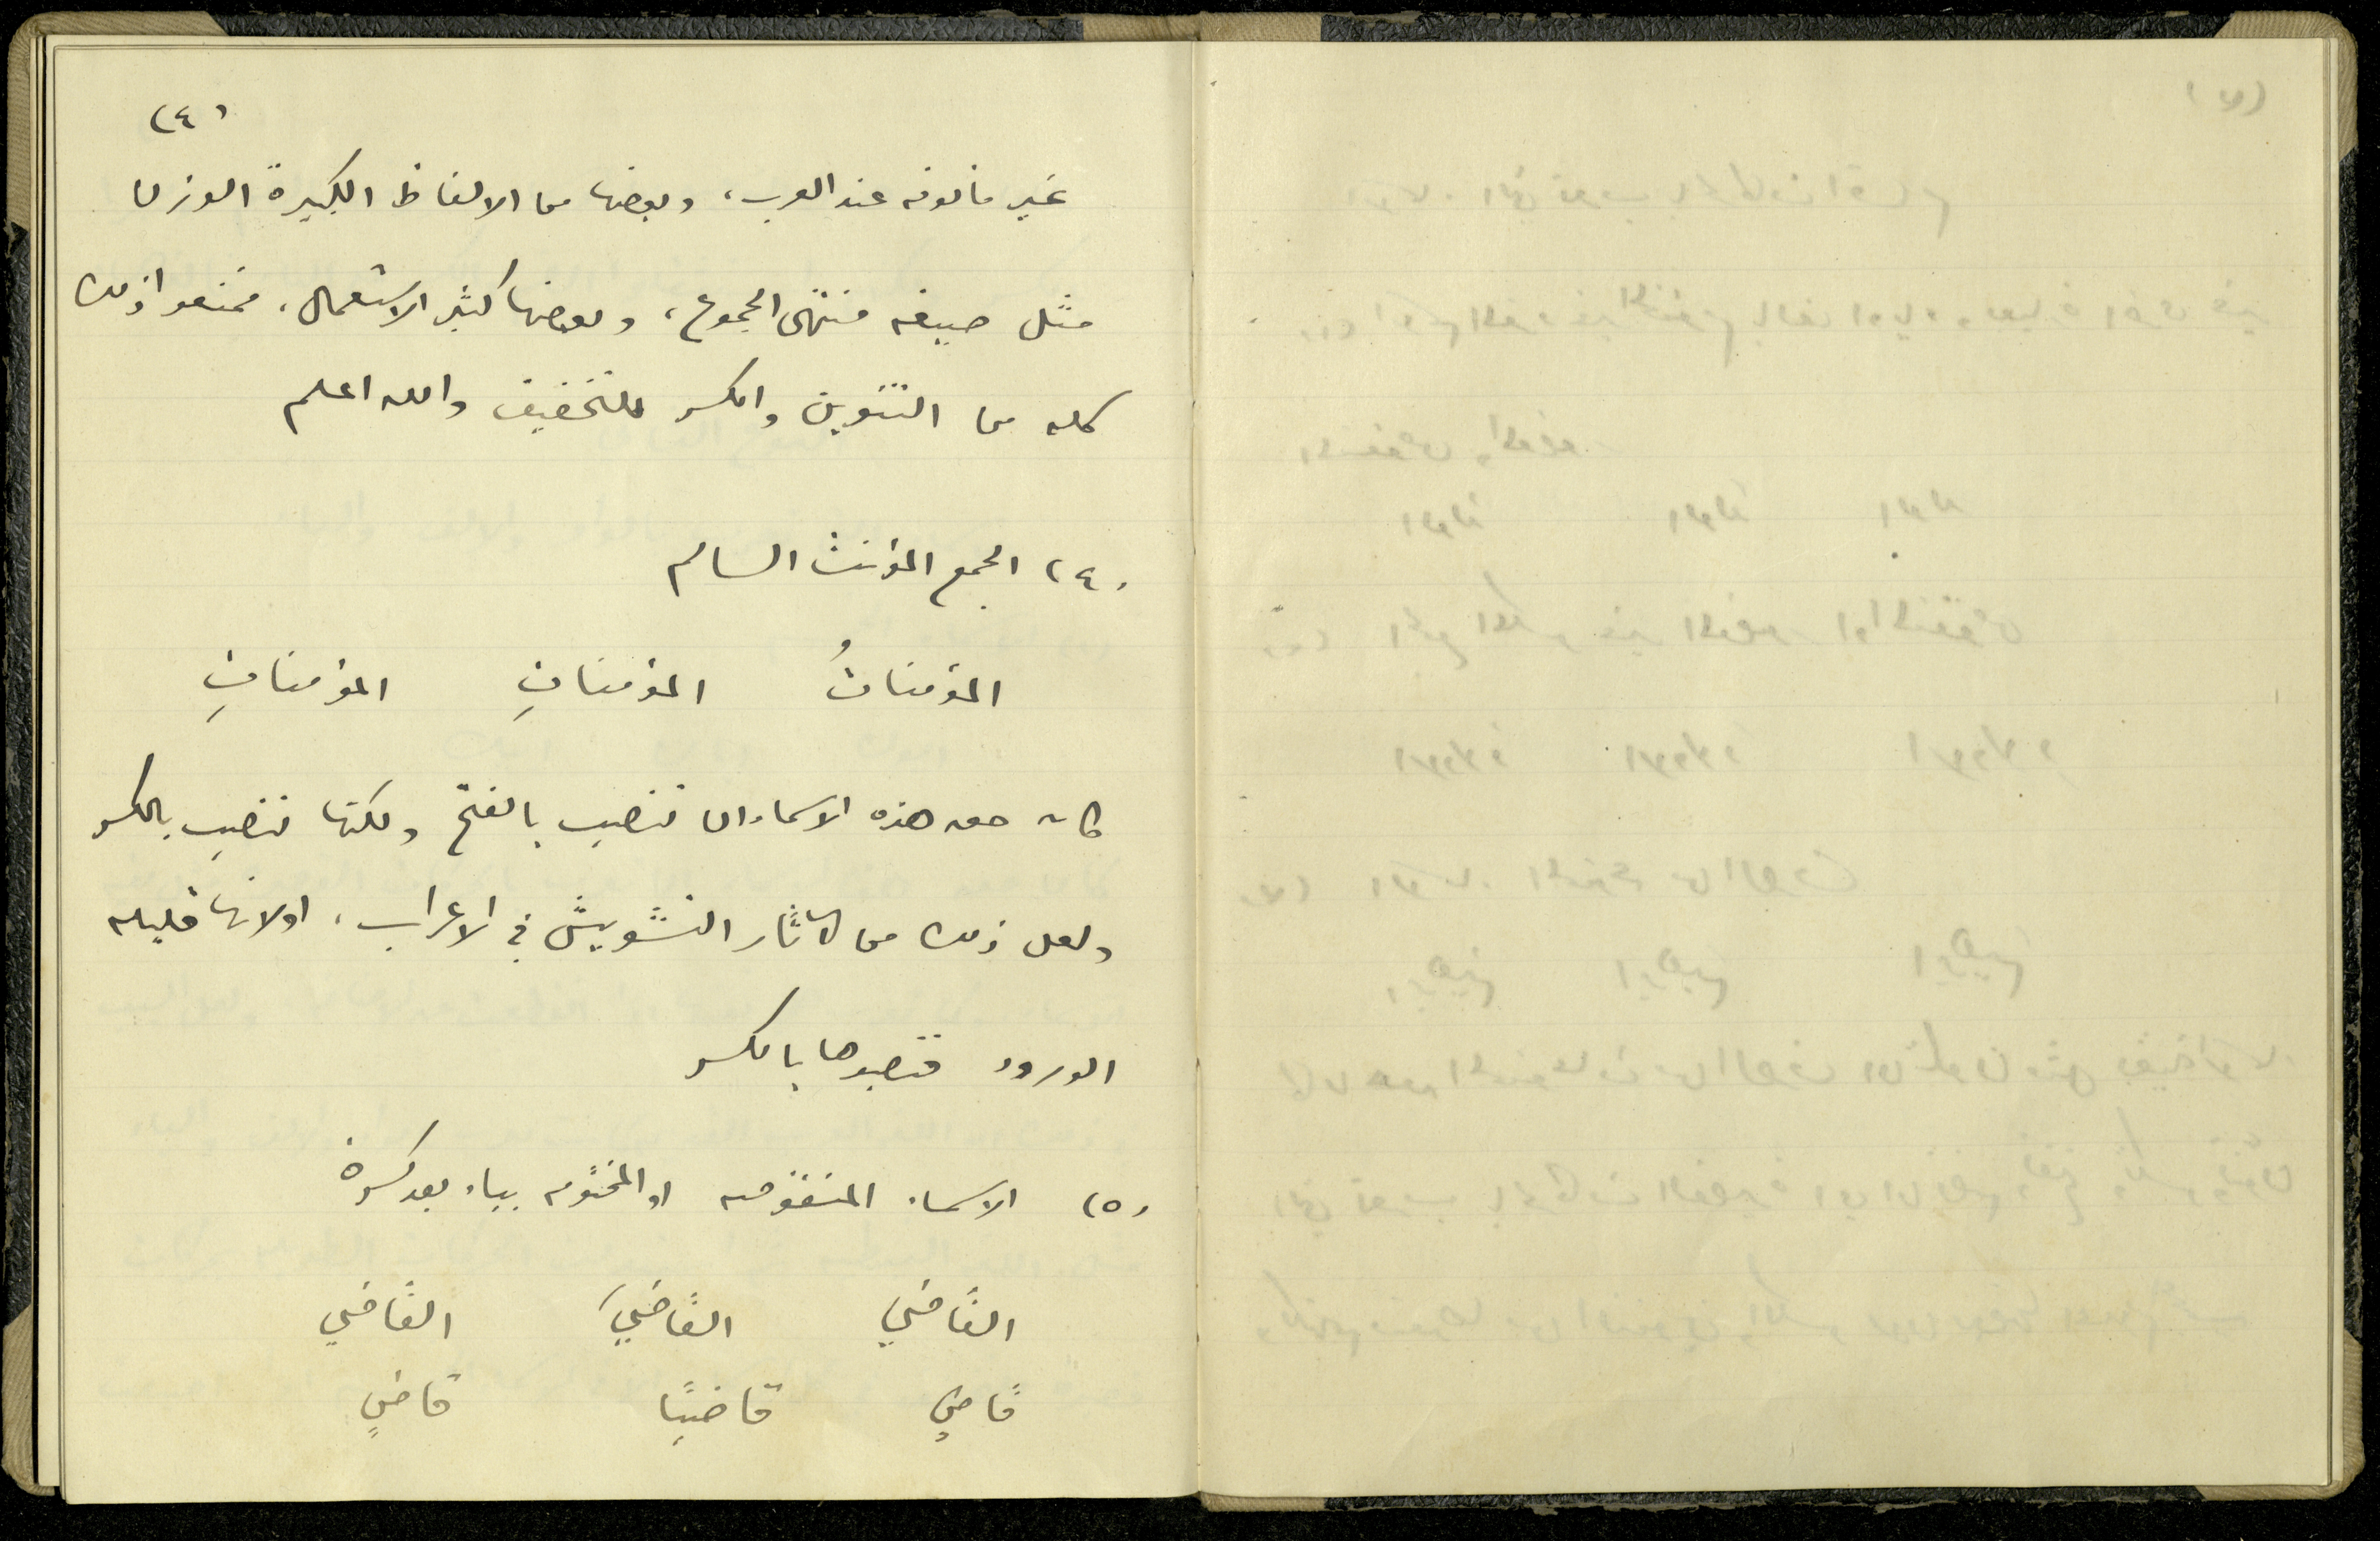 (٤)
غير مألوفه عند العرب، وبعضها من الالفاظ الكبيرة الوزن
مثل صيغه منتهى الجموع، وبعضها كثير الاستعمال، فمنعوا ذلك
كله من التنوين والكسر للتخفيف والله اعلم
(٤) الجمع المؤنث السالم
المؤمناتُ المؤمناتِ المؤمناتِ
كان حق هذه الاسماء ان تنصب بالفتح ولكنها تنصب بالكسر
ولعل ذلك من آثار التشويش في الاعراب، او لانها قليله
الورود فنصبوها بالكسر
(٥) الاسماء المنقوصه او المختومه بياء بعد كسرة
القاضي القاضيَ القاضي
قاضٍ قاضيًا قاضٍ